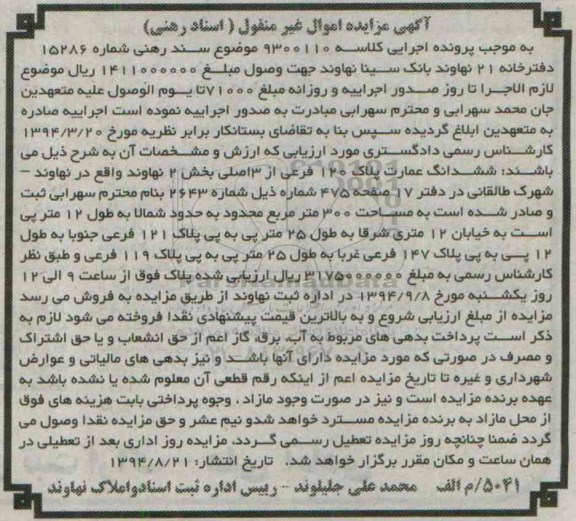 آگهی مزایده اموال غیر منقول ( اسناد رهنی)
به موجب پرونده اجرایی کلاسه ۹۳۰۰۱۱۰ موضوع سند رهنی شماره ۱۵۲۸۶
دفترخانه ۲۱ نهاوند بانک سینا نهاوند جهت وصول مبلغ ۱۴۱۱۰۰۰۰۰۰ ریال موضوع
لازم الاجرا تا روز صدور اجراییه و روزانه مبلغ ۷۱۰۰۰تا یوم الوصول علیه متعهدین
جان محمد سهرابی و محترم سهرابی مبادرت به صدور اجراییه نموده است اجراییه صادره
به متعهدین ابلاغ گردیده سپس بنا به تقاضای بستانکار برابر نظریه مورخ ۱۳۹۴/۳/۲۰
کارشناس رسمی دادگستری مورد ارزیابی که ارزش و مشخصات آن به شرح ذیل می
باشند: ششدانگ عمارت پلاک ۱۲۰ فرعی از ۳اصلی بخش ۲ نهاوند واقع در نهاوند –
شهرک طالقانی در دفتر ۱۷ صفحه ۴۷۵ شماره ذیل شماره ۲۶۴۳ بنام محترم سهرابی ثبت
و صادر شده است به مساحت ۳۰۰ متر مربع محدود به حدود شمالا به طول ۱۲ متر پی
است به خیابان ۱۲ متری شرقا به طول ۲۵ متر پی به پی پلاک ۱۲۱ فرعی جنوبا به طول
۱۲ پی به پی پلاک ۱۴۷ فرعی غربا به طول ۲۵ متر پی به پی پلاک ۱۱۹ فرعی و طبق نظر
کارشناس رسمی به مبلغ ۳۱۷۵۰۰۰۰۰۰ ریال ارزیابی شده پلاک فوق از ساعت ۹ الی ۱۲
روز یکشنبه مورخ ۱۳۹۴/۹/۸ در اداره ثبت نهاوند از طریق مزایده به فروش می رسد
مزایده از مبلغ ارزیابی شروع و به بالاترین قیمت پیشنهادی نقدا فروخته می شود لازم به
ذکر است پرداخت بدهی های مربوط به آب، برق، گاز اعم از حق انشعاب و یا حق اشتراک
و مصرف در صورتی که مورد مزایده دارای آنها باشد و نیز بدهی های مالیاتی و عوارض
شهرداری و غیره تا تاریخ مزایده اعم از اینکه رقم قطعی آن معلوم شده یا نشده باشد به
عهده برنده مزایده است و نیز در صورت وجود مازاد ، وجوه پرداختی بابت هزینه های فوق
از محل مازاد به برنده مزایده مسترد خواهد شدو نیم عشر و حق مزایده نقدا وصول می
گردد ضمنا چنانچه روز مزایده تعطیل رسمی گردد، مزایده روز اداری بعد از تعطیلی در
همان ساعت و مکان مقرر برگزار خواهد شد. تاریخ انتشار: ۱۳۹۴/۸/۲۱
۵۰۴۱/م الف محمد علی جلیلوند – رییس اداره ثبت اسنادواملاک نهاوند